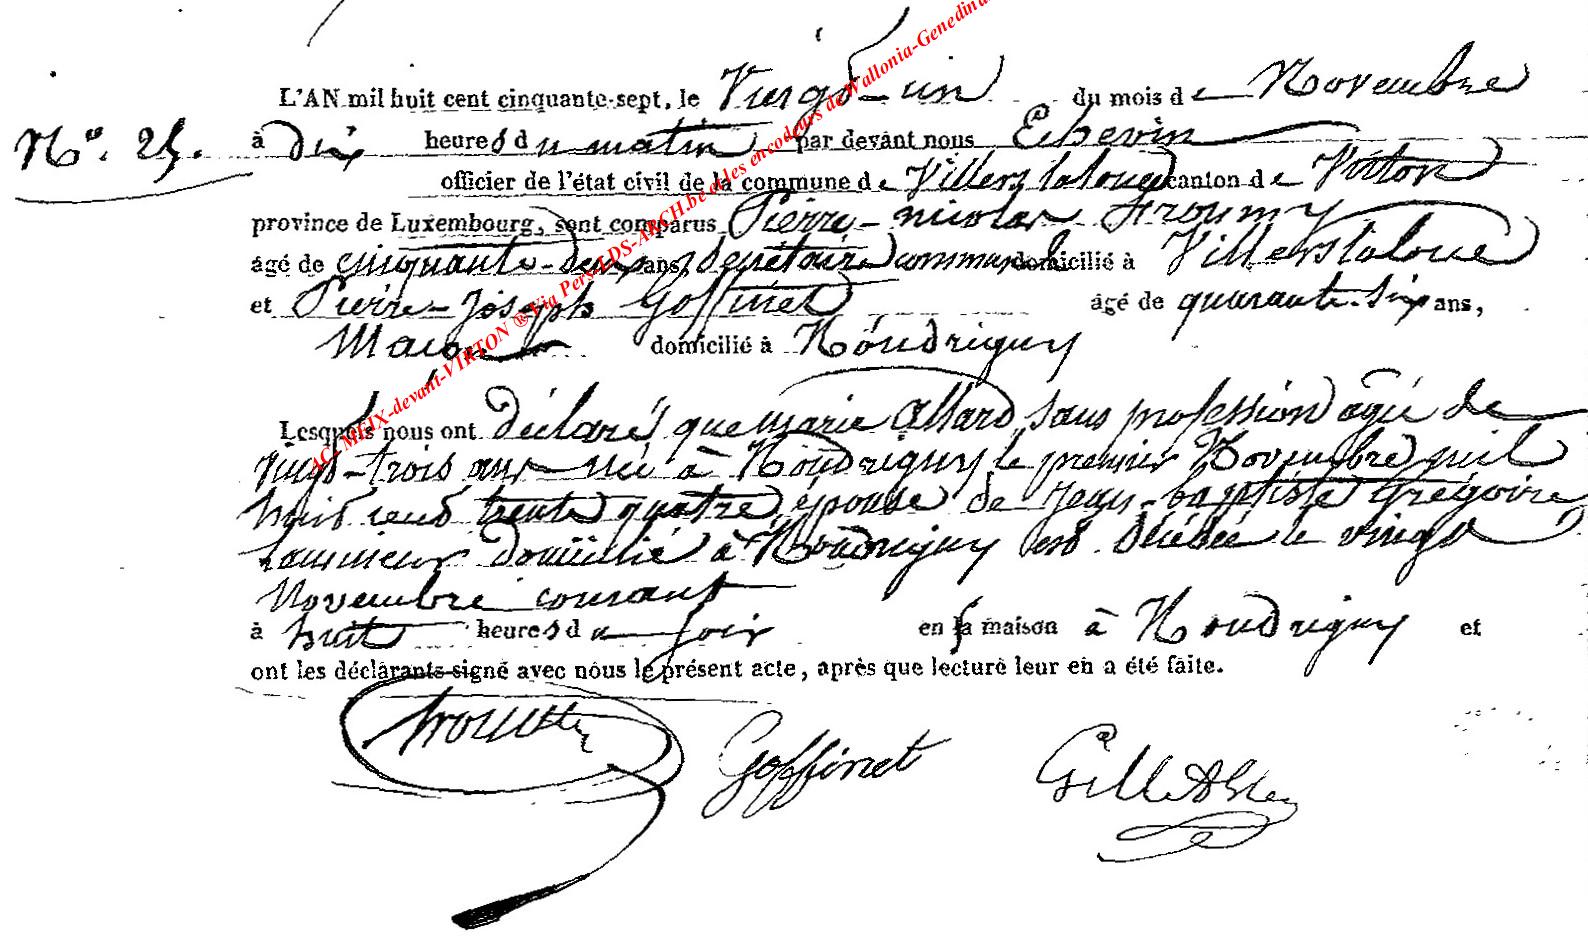 L'AN mil huit cent cinquante-sept, le Vingt-un du mois de Novembre
N° 25. à Dix heures du matin par devant nous Echevin
officier de l'état civil de la commune de Villers laloue canton de Virton
province de Luxembourg, sont comparus Pierre-nicolas
âgé de cinquante-deux ans, Secrétaire communal domicilié à Villerslaloue
et Pierre-Joseph Goffinet âgé de quarante-six ans,
Maçon domicilié à Houdrigny
Lesquels nous ont déclaré que Marie Allard sans profession agée de
vingt-trois ans née à Houdrigny le premier Novembre mil
huit cent trente quatre épouse de Jean-baptiste Grégoire
domicilié à Houdrigny est décédée le vingt
Novembre courant
à huit heures du soir en sa maison à Houdrigny et
ont les déclarants signé avec nous le présent acte, après que lecture leur en a été faite.
Goffinet
AC. MEIX-devant-VIRTON ® Via Pers-LDS-ARCH.be et les encodeurs de Wallonia-Genedin